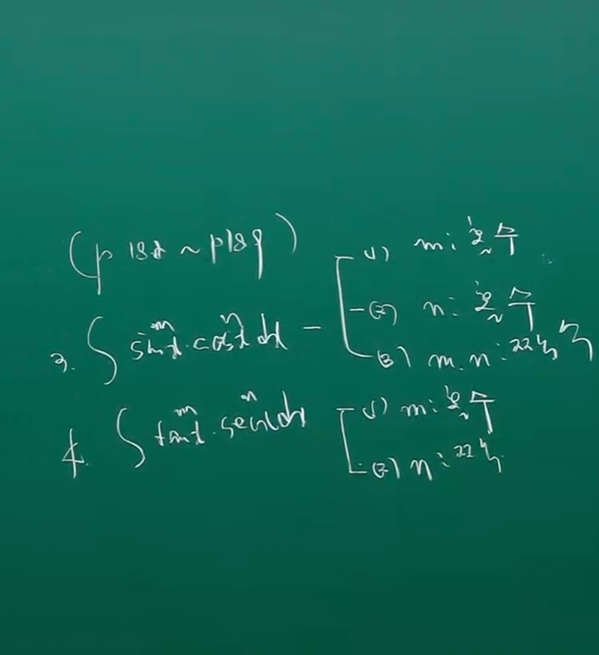 (p 188 ~ p189)
3. ∫ sin^m x · cos^n x dx – (1) m : 홀수
(2) n : 홀수
(3) m, n : 짝수
4. ∫ tan^m x · sec^n x dx (1) m : 홀수
(2) n : 짝수